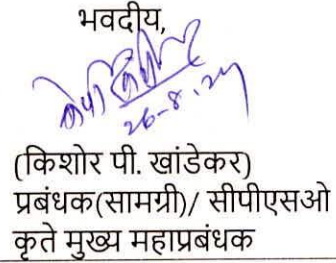 भवदीय,
26-8-24
(किशोर पी. खांडेकर)
प्रबंधक(सामग्री)/ सीपीएसओ
कृते मुख्य महाप्रबंधक